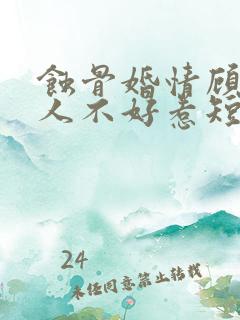 蚀骨婚情顾
人不好惹短
24
未经同意禁止转载